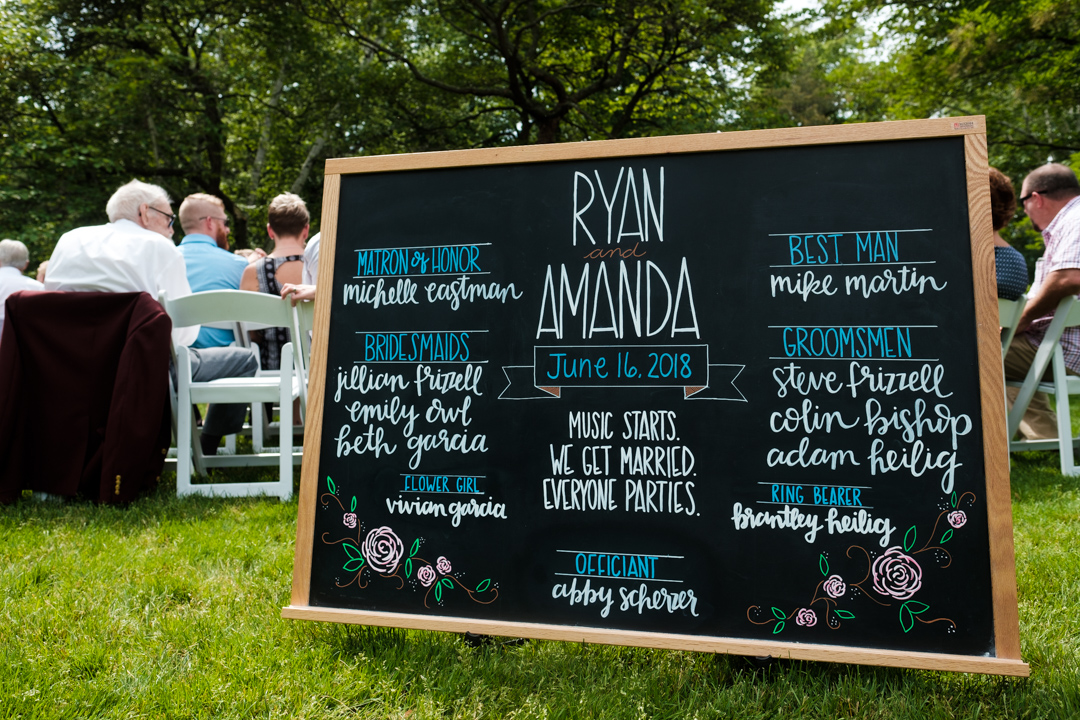 RYAN
and
AMANDA
June 16, 2018
MUSIC STARTS.
WE GET MARRIED.
EVERYONE PARTIES.
OFFICIANT
abby scherzer
MATRON of HONOR
michelle eastman
BRIDESMAIDS
jillian frizell
emily owl
beth garcia
FLOWER GIRL
vivian garcia
BEST MAN
mike martin
GROOMSMEN
steve frizzell
colin bishop
adam heilig
RING BEARER
brantley heilig